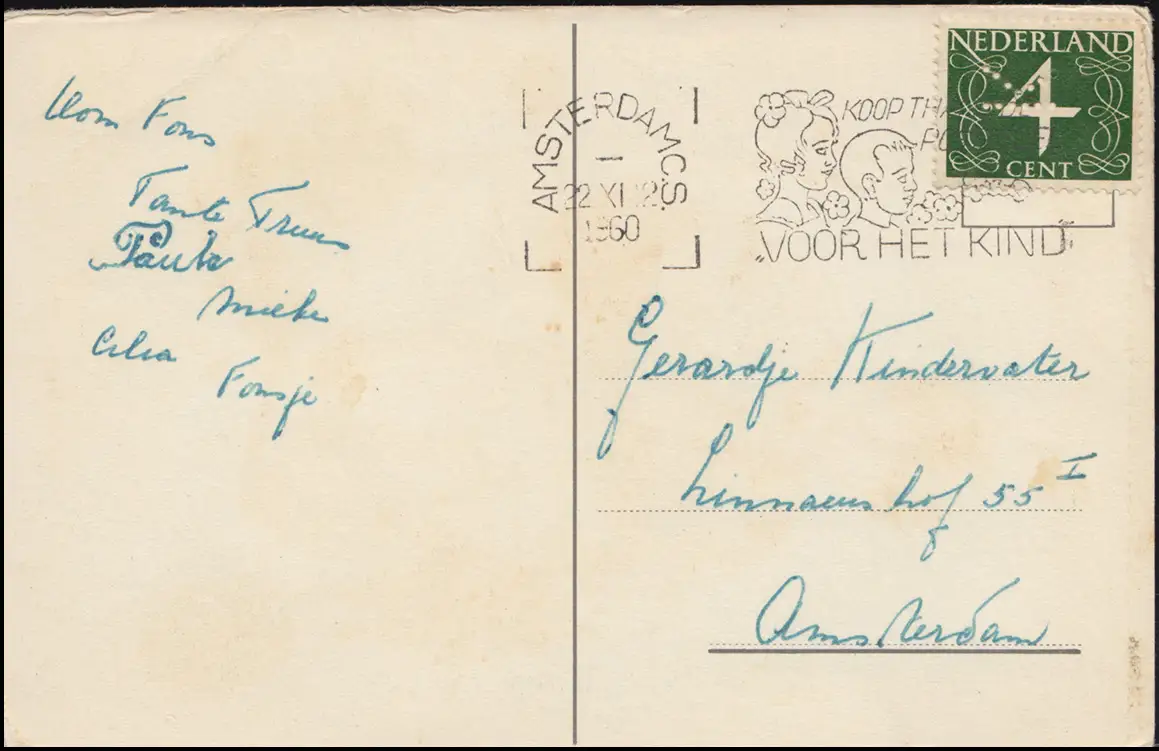 Oom Fons
Tante Truus
Paula
Mieke
Cilia
Fonsje
AMSTERDAM C.S.
1
22 XI 12
1960
KOOP THA
PO
"VOOR HET KIND"
NEDERLAND
4
CENT
Gerardje Kindervater
Linnaeus hof 55 I
Amsterdam